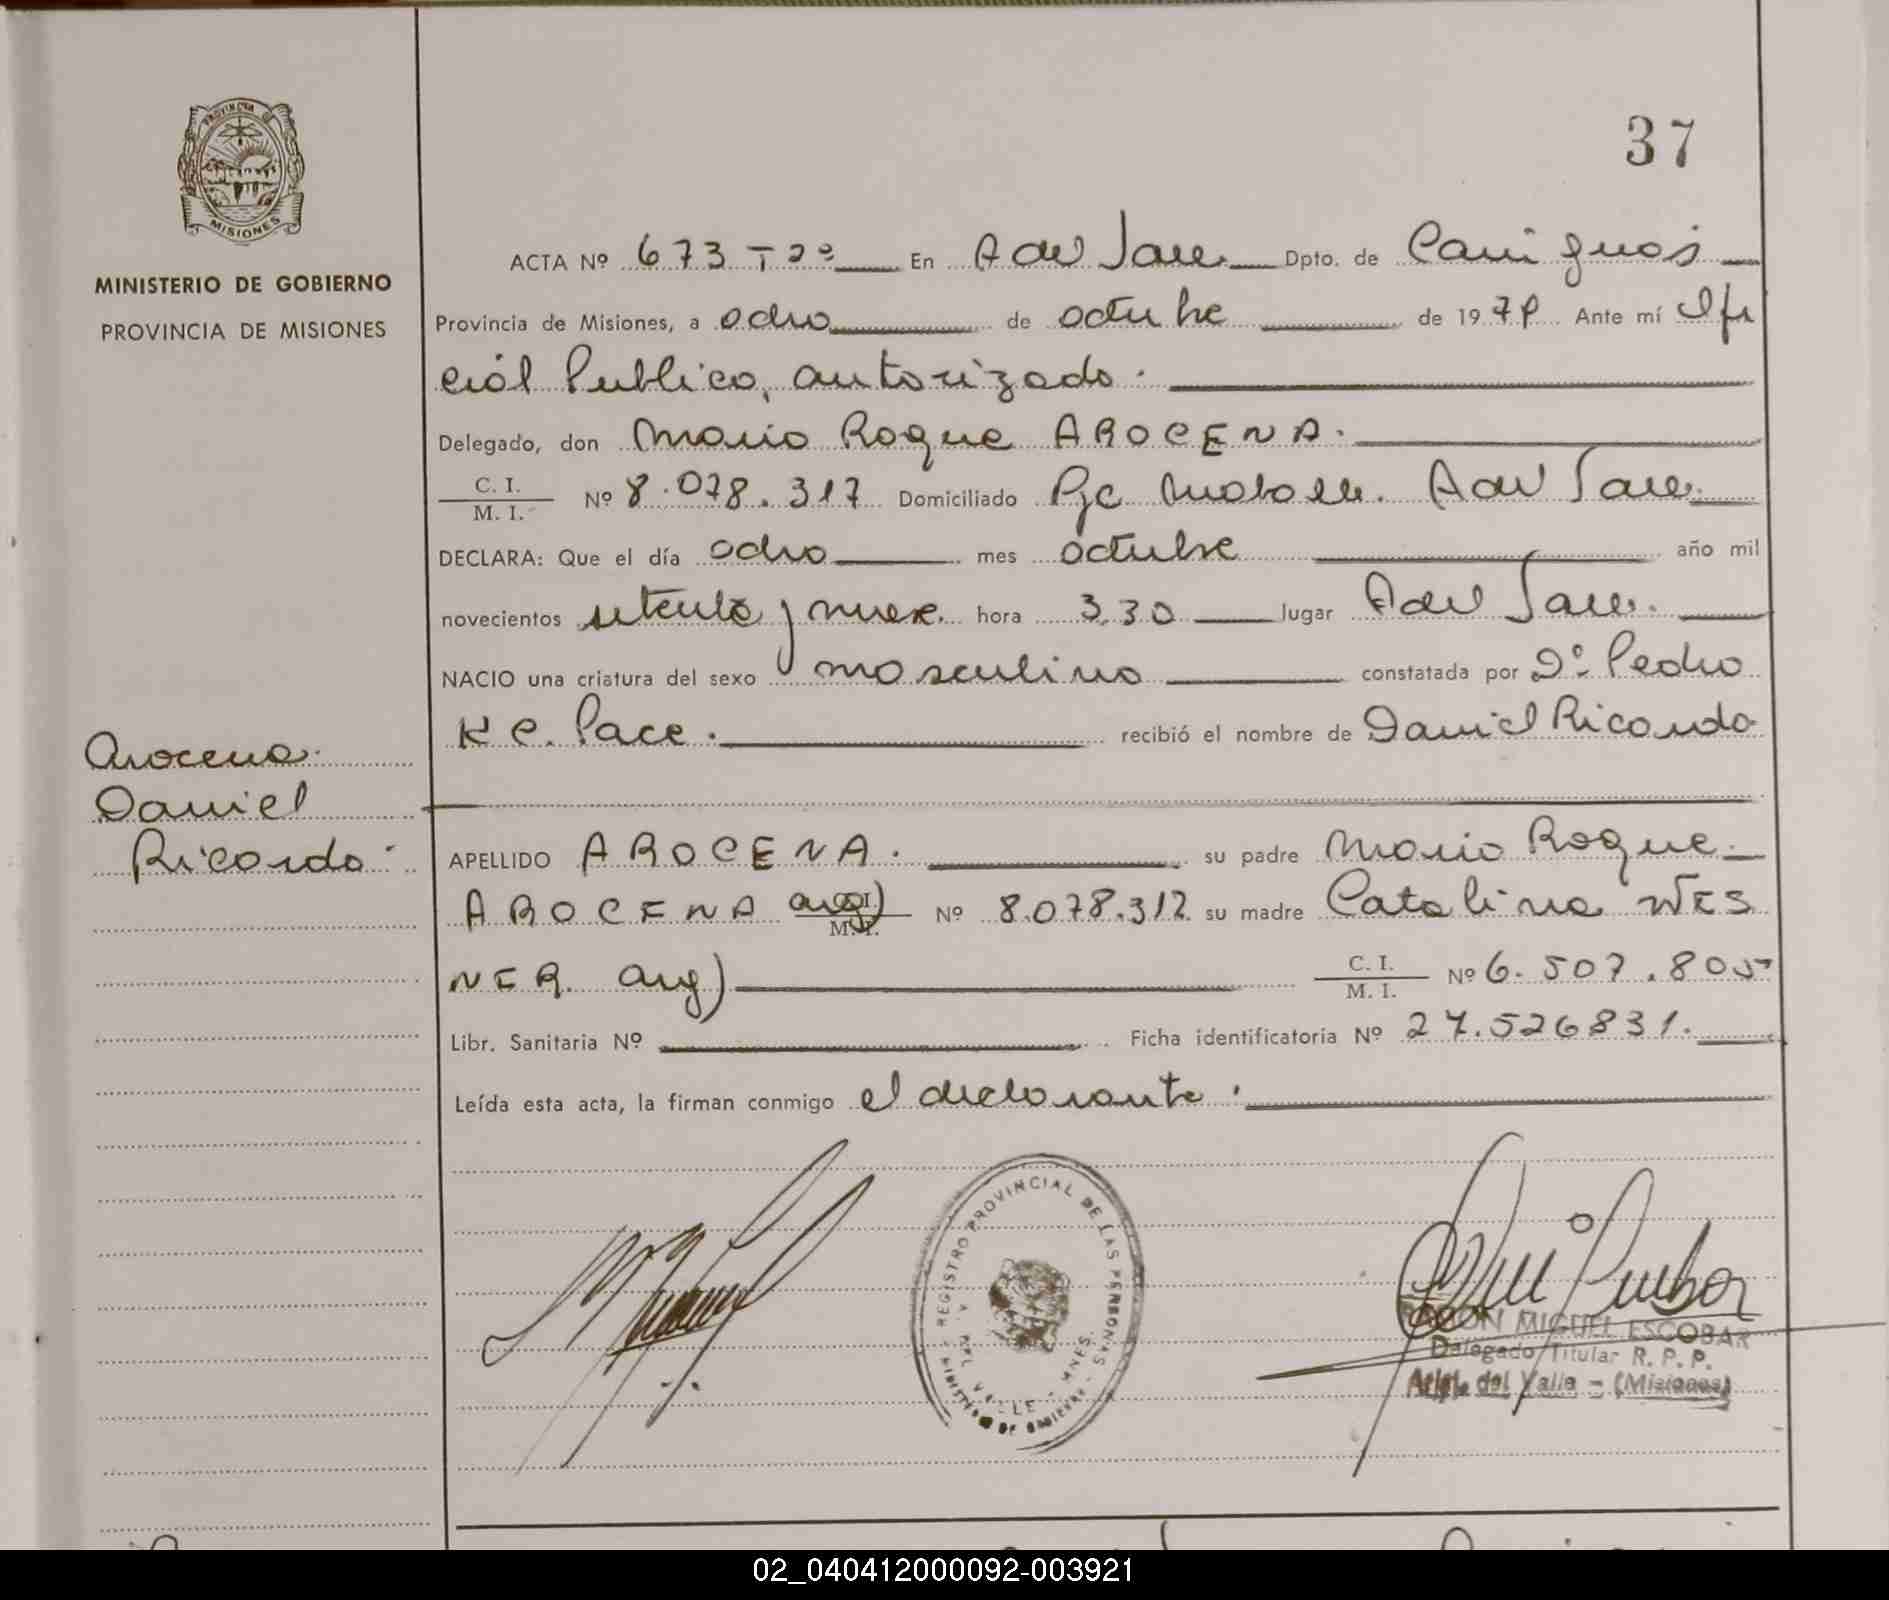 37
PROVINCIA DE
MISIONES
MINISTERIO DE GOBIERNO
PROVINCIA DE MISIONES
ACTA Nº 673 T 2º En A del Valle Dpto. de Cainguás
Provincia de Misiones, a ocho de octubre de 1979. Ante mí Ofi
cial Publico, autorizado.
Delegado, don Mario Roque AROCENA.
C. I.
M. I. Nº 8.078.317 Domiciliado Pje A del Valle.
DECLARA: Que el día ocho mes octubre año mil
novecientos setenta y nueve. hora 3,30 lugar A del Valle.
NACIO una criatura del sexo masculino constatada por Dº Pedro
K C. Pace. recibió el nombre de Daniel Ricardo
Arocena.
Daniel
Ricardo
APELLIDO AROCENA. su padre Mario Roque
AROCENA arg) C. I.
M. I. Nº 8.078.317 su madre Catalina WES
NER. arg) C. I.
M. I. Nº 6.507.805
Libr. Sanitaria Nº Ficha identificatoria Nº 27.526831.
Leída esta acta, la firman conmigo el declarante.
REGISTRO PROVINCIAL DE LAS PERSONAS
MINISTERIO DE GOBIERNO
A. DEL VALLE - MNES.
RAMON MIGUEL ESCOBAR
Delegado Titular R. P. P.
Aristóbulo del Valle - (Misiones)
02_040412000092-003921